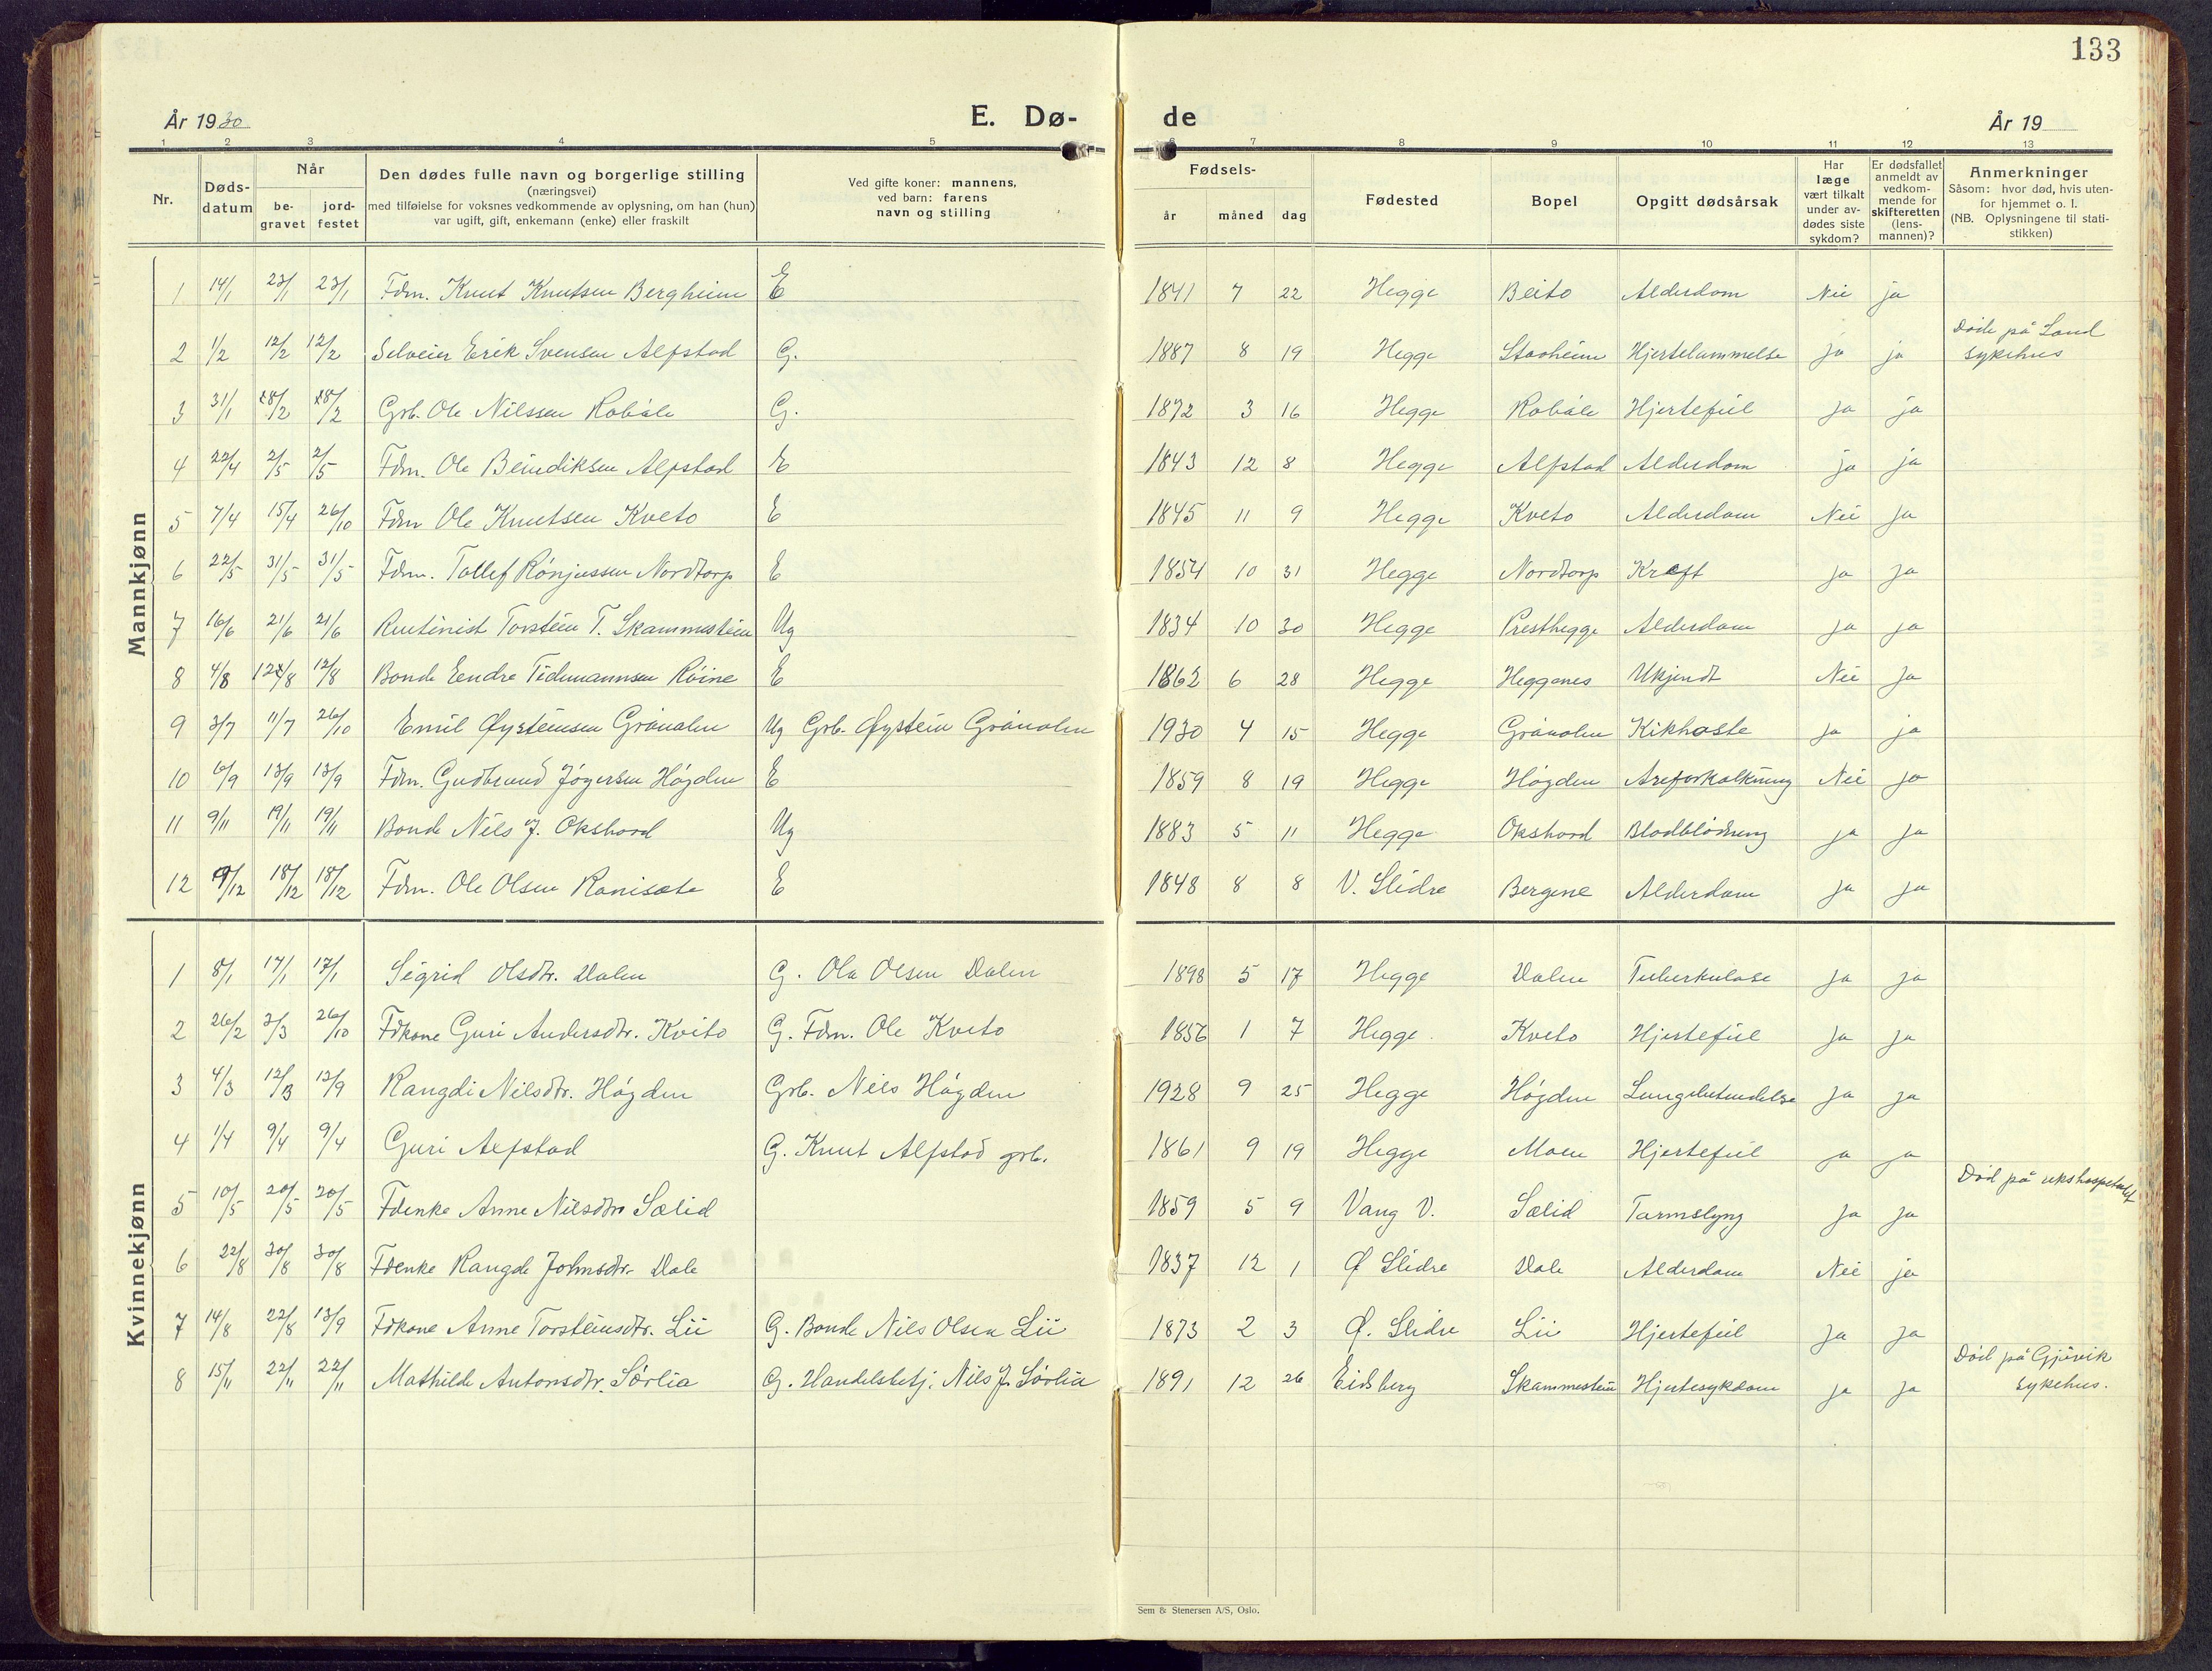 133
År 1930 E. Dø- de År 19
1 2 3 4 5 6 7 8 9 10 11 12 13
Nr.
Døds-
datum
Når
be-
gravet
jord-
festet
Den dødes fulle navn og borgerlige stilling
(næringsvei)
med tilføielse for voksnes vedkommende av oplysning, om han (hun)
var ugift, gift, enkemann (enke) eller fraskilt
Ved gifte koner: mannens,
ved barn: farens
navn og stilling
Fødsels-
år måned dag
Fødested
Bopel
Opgitt dødsårsak
Har
læge
vært tilkalt
under av-
dødes siste
sykdom?
Er dødsfallet
anmeldt av
vedkom-
mende for
skifteretten
(lens-
mannen)?
Anmerkninger
Såsom: hvor død, hvis uten-
for hjemmet o. l.
(NB. Oplysningene til stati-
stikken)
Mannkjønn
1 14/1 23/1 23/1 Fdm. Knut Knutsen Bergheim E 1841 7 22 Hegge Beito Alderdom Nei ja
2 1/2 12/2 12/2 Selveier Erik Svensen Alfstad G. 1887 8 19 Hegge Starheim Hjertelammelse ja ja Døde på Land
sykehus
3 31/1 28/2 28/2 Grb. Ole Nilssen Robøle G. 1872 3 16 Hegge Robøle Hjertefeil ja ja
4 22/4 2/5 2/5 Fdm. Ole Beindiksen Alfstad E 1843 12 8 Hegge Alfstad Alderdom ja ja
5 7/4 15/4 26/10 Fdm Ole Knutsen Kveto E 1845 11 9 Hegge Kveto Alderdom Nei ja
6 22/5 31/5 31/5 Fdm. Tollef Rønjussen Nordtorp E 1854 10 31 Hegge Nordtorp Kreft ja ja
7 16/6 21/6 21/6 Rentenist Torstein T. Skammestein Ug 1834 10 30 Hegge Presthegge Alderdom ja ja
8 4/8 12/8 12/8 Bonde Eendre Tidemannsen Røine E 1862 6 28 Hegge Heggenes Ukjendt Nei ja
9 3/7 11/7 26/10 Emil Øysteinsen Grånolen Ug Grb. Øystein Grånolen 1930 4 15 Hegge Grånolen Kikhoste ja ja
10 6/9 13/9 13/9 Fdm. Gudbrand Jøgersen Høgden E 1859 8 19 Hegge Høgden Areforkalkning Nei ja
11 9/11 19/11 19/11 Bonde Nils J. Okshovd Ug 1883 5 11 Hegge Okshovd Blodblødning ja ja
12 9/12 18/12 18/12 Fdm. Ole Olsen Ranisæte E 1848 8 8 V. Slidre Bergene Alderdom ja ja
Kvinnekjønn
1 8/1 17/1 17/1 Sigrid Olsdtr. Dalen G. Ola Olsen Dalen 1898 5 17 Hegge Dalen Tuberkulose ja ja
2 26/2 3/3 26/10 Fdkone Guri Andersdtr. Kveto G. Fdm. Ole Kveto 1856 1 7 Hegge Kveto Hjertefeil ja ja
3 4/3 12/3 13/9 Rangdi Nilsdtr. Høgden Grb. Nils Høgden 1928 9 25 Hegge Høgden Lungebetendelse ja ja
4 1/4 9/4 9/4 Guri Alfstad G. Knut Alfstad grb. 1861 9 19 Hegge Moen Hjertefeil ja ja
5 10/5 20/5 20/5 Fdenke Anne Nilsdtr Sælid 1859 5 9 Vang V. Sælid Tarmslyng ja ja Død på rikshospitalet
6 22/8 30/8 30/8 Fdenke Rangde Johnsdtr. Dale 1837 12 1 Ø Slidre Dale Alderdom Nei ja
7 14/8 22/8 13/9 Fdkone Anne Torsteinsdtr. Lii G. Bonde Nils Olsen Lii 1873 2 3 Ø. Slidre Lii Hjertefeil ja ja
8 15/11 22/11 22/11 Mathilde Antonsdtr. Sørlia G. Handelsbetj. Nils J. Sørlia 1891 12 26 Eidsberg Skammestein Hjertesykdom ja ja Død på Gjøvik
sykehus.
Sem & Stenersen A/S, Oslo.